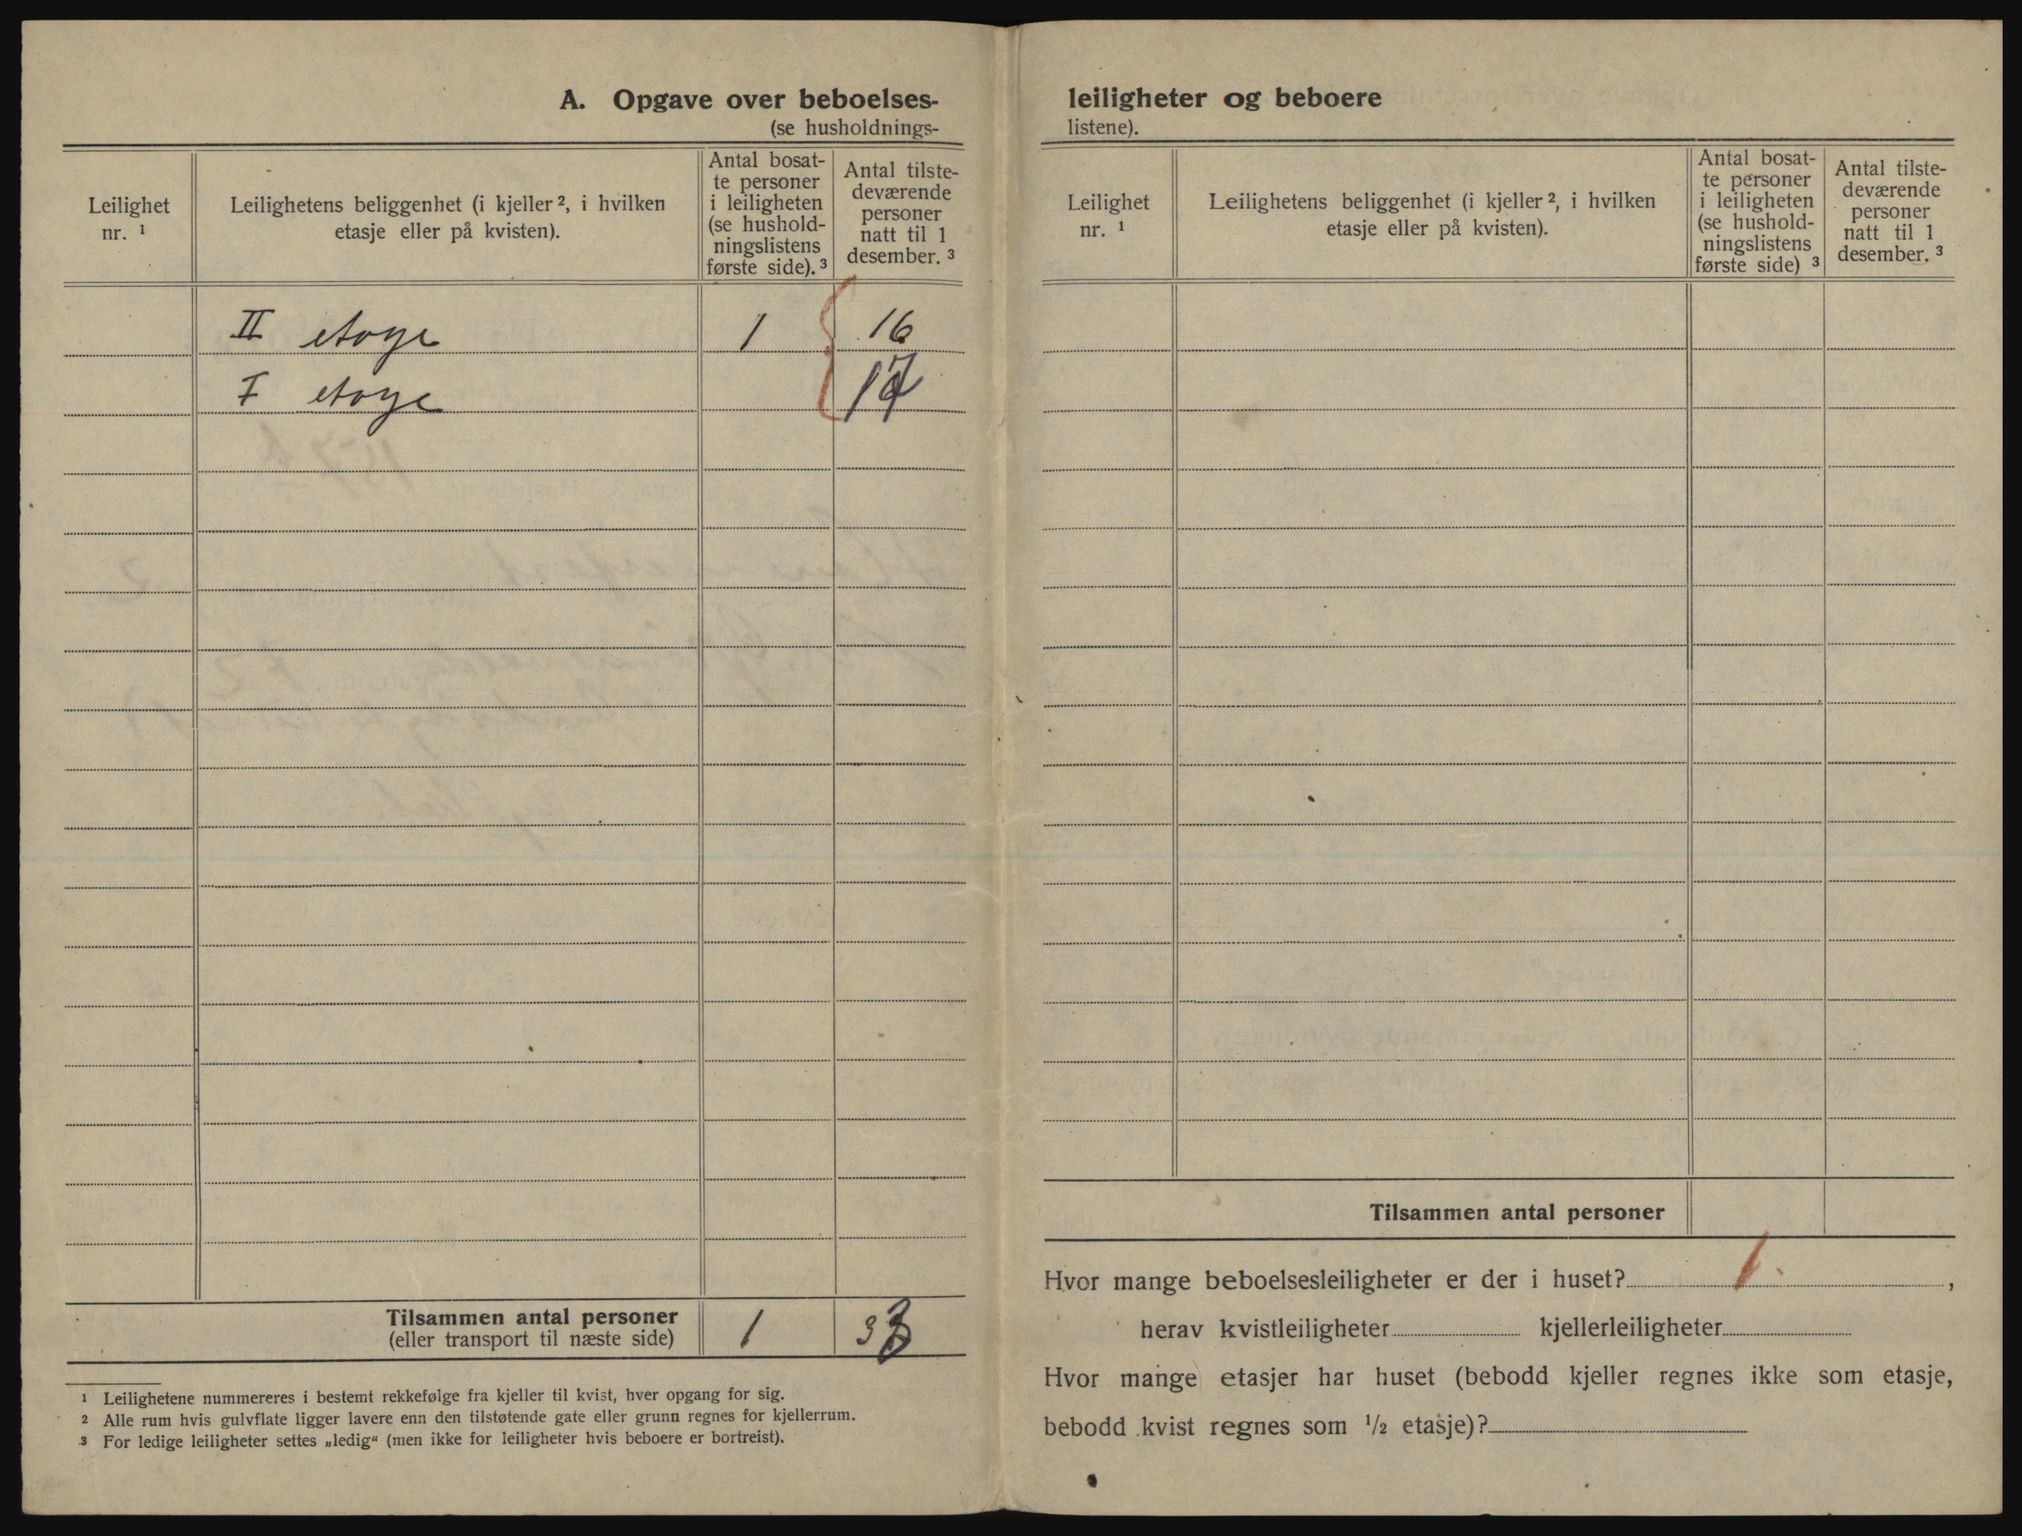 A. Opgave over beboelses-
(se husholdnings-
Leilighet
nr. ¹
Leilighetens beliggenhet (i kjeller ², i hvilken
etasje eller på kvisten).
Antal bosat-
te personer
i leiligheten
(se hushold-
ningslistens
første side). ³
Antal tilste-
deværende
personer
natt til 1
desember. ³
II etage 1 16
I etage 17
Tilsammen antal personer
(eller transport til næste side)
1 33
¹ Leilighetene nummereres i bestemt rekkefølge fra kjeller til kvist, hver opgang for sig.
² Alle rum hvis gulvflate ligger lavere enn den tilstøtende gate eller grunn regnes for kjellerrum.
³ For ledige leiligheter settes „ledig“ (men ikke for leiligheter hvis beboere er bortreist).
leiligheter og beboere
listene).
Leilighet
nr. ¹
Leilighetens beliggenhet (i kjeller ², i hvilken
etasje eller på kvisten).
Antal bosat-
te personer
i leiligheten
(se hushold-
ningslistens
første side) ³
Antal tilste-
deværende
personer
natt til 1
desember. ³
Tilsammen antal personer
Hvor mange beboelsesleiligheter er der i huset? 1.,
herav kvistleiligheter kjellerleiligheter
Hvor mange etasjer har huset (bebodd kjeller regnes ikke som etasje,
bebodd kvist regnes som ½ etasje)?